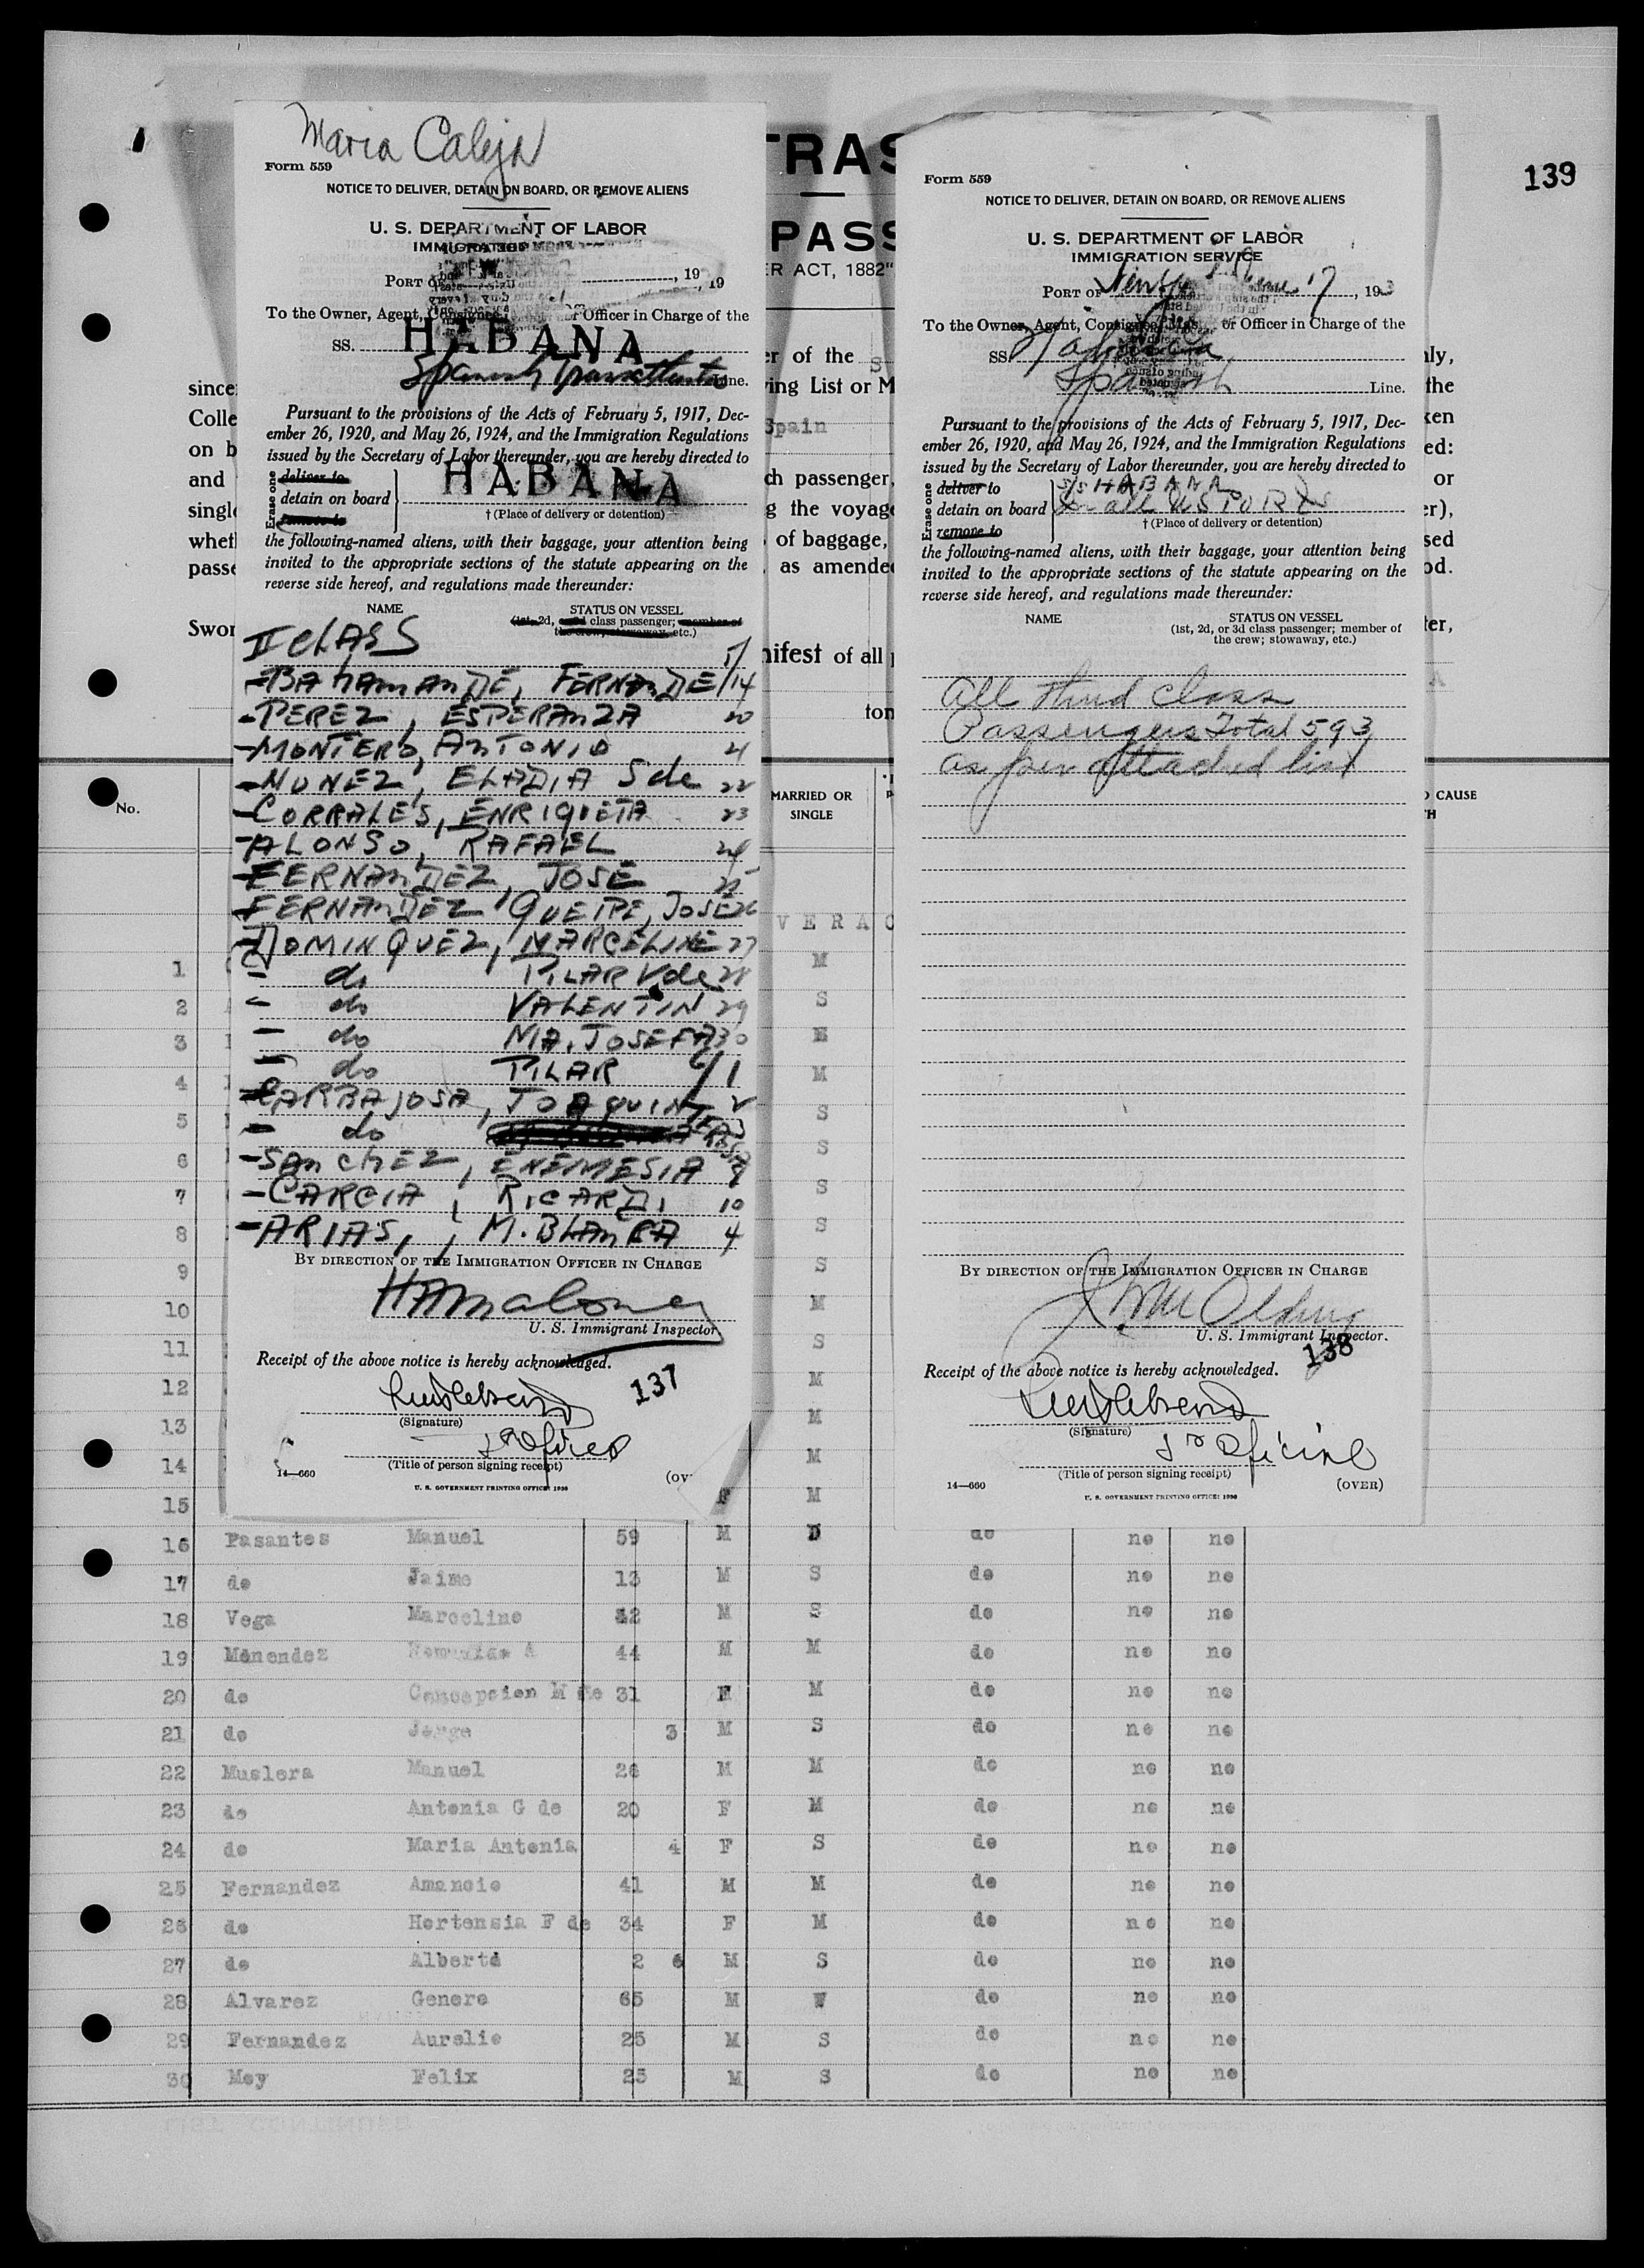 139
Maria Caleja
Form 559
NOTICE TO DELIVER, DETAIN ON BOARD, OR REMOVE ALIENS
U. S. DEPARTMENT OF LABOR
IMMIGRATION
PORT OF , 19
, 19
To the Owner, Agent, Consignee, or Officer in Charge of the
SS. HABANA
Spanish Transatlantic Line.
Pursuant to the provisions of the Acts of February 5, 1917, Dec-
ember 26, 1920, and May 26, 1924, and the Immigration Regulations
issued by the Secretary of Labor thereunder, you are hereby directed to
HABANA
Erase one
deliver to
detain on board
remove to
† (Place of delivery or detention)
the following-named aliens, with their baggage, your attention being
invited to the appropriate sections of the statute appearing on the
reverse side hereof, and regulations made thereunder:
NAME STATUS ON VESSEL
(1st, 2d, or 3d class passenger; member of
the crew; stowaway, etc.)
II CLASS
5/
- BAHAMANDE, FERNANDE 14
- PEREZ, ESPERANZA 20
- MONTERO, ANTONIO 21
- NUNEZ, ELADIA S de 22
- CORRALES, ENRIQUETA 23
- ALONSO, RAFAEL 24
- FERNANDEZ, JOSE 25
- FERNANDEZ QUEIPE, JOSE 26
- DOMINQUEZ, MARCELINE 27
- do PILAR V de 28
- do VALENTIN 29
- do MA. JOSEFA 30
- do PILAR 6/1
- CARBAJOSA, JOAQUIN 2
- do
- SANCHEZ, ENEMESIA 9
- GARCIA, RICARDI 10
- ARIAS, M. BLANCA 4
BY DIRECTION OF THE IMMIGRATION OFFICER IN CHARGE
HAMaloney
U. S. Immigrant Inspector
Receipt of the above notice is hereby acknowledged.
137
(Signature)
(Title of person signing receipt)
14—660
(OV
U. S. GOVERNMENT PRINTING OFFICE: 1930
TRAS
PASS
R ACT, 1882"
er of the S
ing List or M
Spain
ch passenger,
g the voyage
of baggage,
as amended
nifest of all
ton
MARRIED OR
SINGLE
VERAC
Form 559
NOTICE TO DELIVER, DETAIN ON BOARD, OR REMOVE ALIENS
U. S. DEPARTMENT OF LABOR
IMMIGRATION SERVICE
PORT OF New York June 17, 193
To the Owner, Agent, Consignee, Mas. or Officer in Charge of the
SS Habana
Spanish Line.
Pursuant to the provisions of the Acts of February 5, 1917, Dec-
ember 26, 1920, and May 26, 1924, and the Immigration Regulations
issued by the Secretary of Labor thereunder, you are hereby directed to
Erase one
deliver to
detain on board
remove to
S/S HABANA
in all US PORTS
† (Place of delivery or detention)
the following-named aliens, with their baggage, your attention being
invited to the appropriate sections of the statute appearing on the
reverse side hereof, and regulations made thereunder:
NAME STATUS ON VESSEL
(1st, 2d, or 3d class passenger; member of
the crew; stowaway, etc.)
All third class
Passengers Total 593
as per attached list
BY DIRECTION OF THE IMMIGRATION OFFICER IN CHARGE
U. S. Immigrant Inspector.
138
Receipt of the above notice is hereby acknowledged.
(Signature)
(Title of person signing receipt)
14—660
(OVER)
U. S. GOVERNMENT PRINTING OFFICE: 1930
since
Colle
on b
and
single
whet
passe
Swor
ly,
the
ken
ed:
or
er),
sed
od.
ter,
CAUSE
No.
1 M
2 S
3
4 M
5 S
6 S
7 S
8 S
9 S
10 M
11 S
12 M
13 M
14 M
15 F M
16 Pasantes Manuel 59 M D do no no
17 do Jaime 13 M S do no no
18 Vega Marceline 42 M S do no no
19 Menendez A 44 M M do no no
20 do Concepcion M de 31 F M do no no
21 do Jorge 3 M S do no no
22 Muslera Manuel 26 M M do no no
23 do Antonia G de 20 F M do no no
24 do Maria Antonia 4 F S do no no
25 Fernandez Amancie 41 M M do no no
26 do Hortensia F de 34 F M do no no
27 do Alberte 2 6 M S do no no
28 Alvarez Genere 65 M W do no no
29 Fernandez Aurelie 25 M S do no no
30 Mey Felix 25 M S do no no